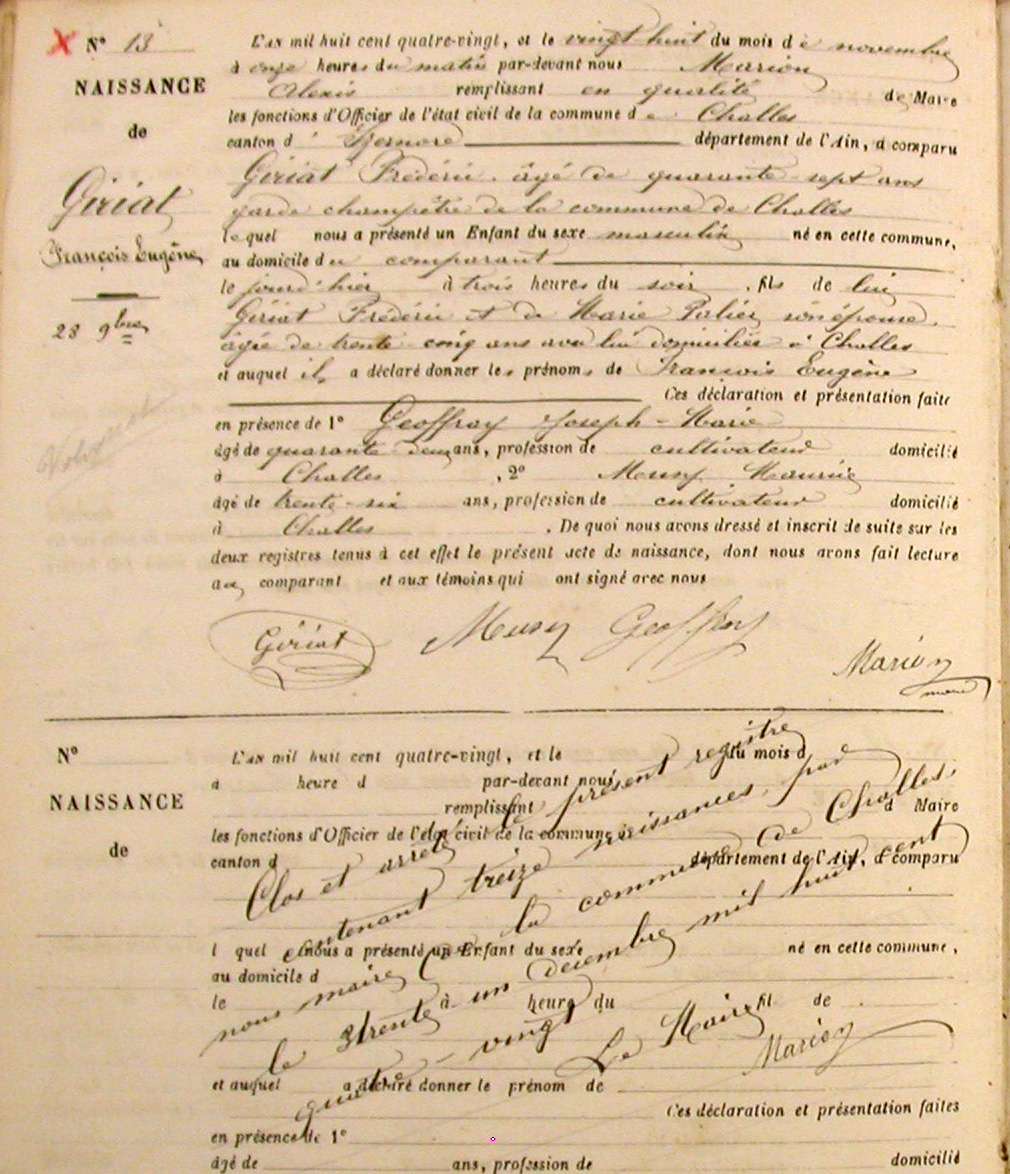 N° 13
NAISSANCE
de
Giriat
François Eugène
28 9bre
L'AN mil huit cent quatre-vingt, et le vingt huit du mois de novembre
à onze heures du matin par-devant nous Marion
Alexis remplissant en qualité de Maire
les fonctions d'Officier de l'état civil de la commune de Challes
canton d' département de l'Ain, a comparu
Giriat Frédéric âgé de quarante-sept ans
garde champêtre de la commune de Challes
lequel nous a présenté un Enfant du sexe masculin né en cette commune,
au domicile du comparant
le jour d'hier à trois heures du soir, fils de lui
Giriat Frédéric et de Marie son épouse
âgée de trente cinq ans avec lui domiciliée à Challes
et auquel il a déclaré donner les prénoms de François Eugène
Ces déclaration et présentation faite
en présence de 1° Geoffray Joseph-Marie
âgé de quarante deux ans, profession de cultivateur domicilié
à Challes, 2° Musy Maurice
âgé de trente-six ans, profession de cultivateur domicilié
à Challes. De quoi nous avons dressé et inscrit de suite sur les
deux registres tenus à cet effet le présent acte de naissance, dont nous avons fait lecture
au comparant et aux témoins qui ont signé avec nous
Giriat Musy Geoffray
Marion
maire
N°
NAISSANCE
de
L'AN mil huit cent quatre-vingt, et le du mois d
à heure d par-devant nous
remplissant d Maire
les fonctions d'Officier de l'état civil de la commune d
canton d département de l'Ain, a comparu
l quel nous a présenté un Enfant du sexe né en cette commune,
au domicile d
le à heure du fil de
et auquel a déclaré donner le prénom de
Ces déclaration et présentation faites
en présence de 1°
âgé de ans, profession de domicilié
Clos et arrêté le présent registre
contenant treize naissances, par
nous maire de la commune de Challes,
le trente un décembre mil huit cent
quatre-vingt
Le Maire
Marion